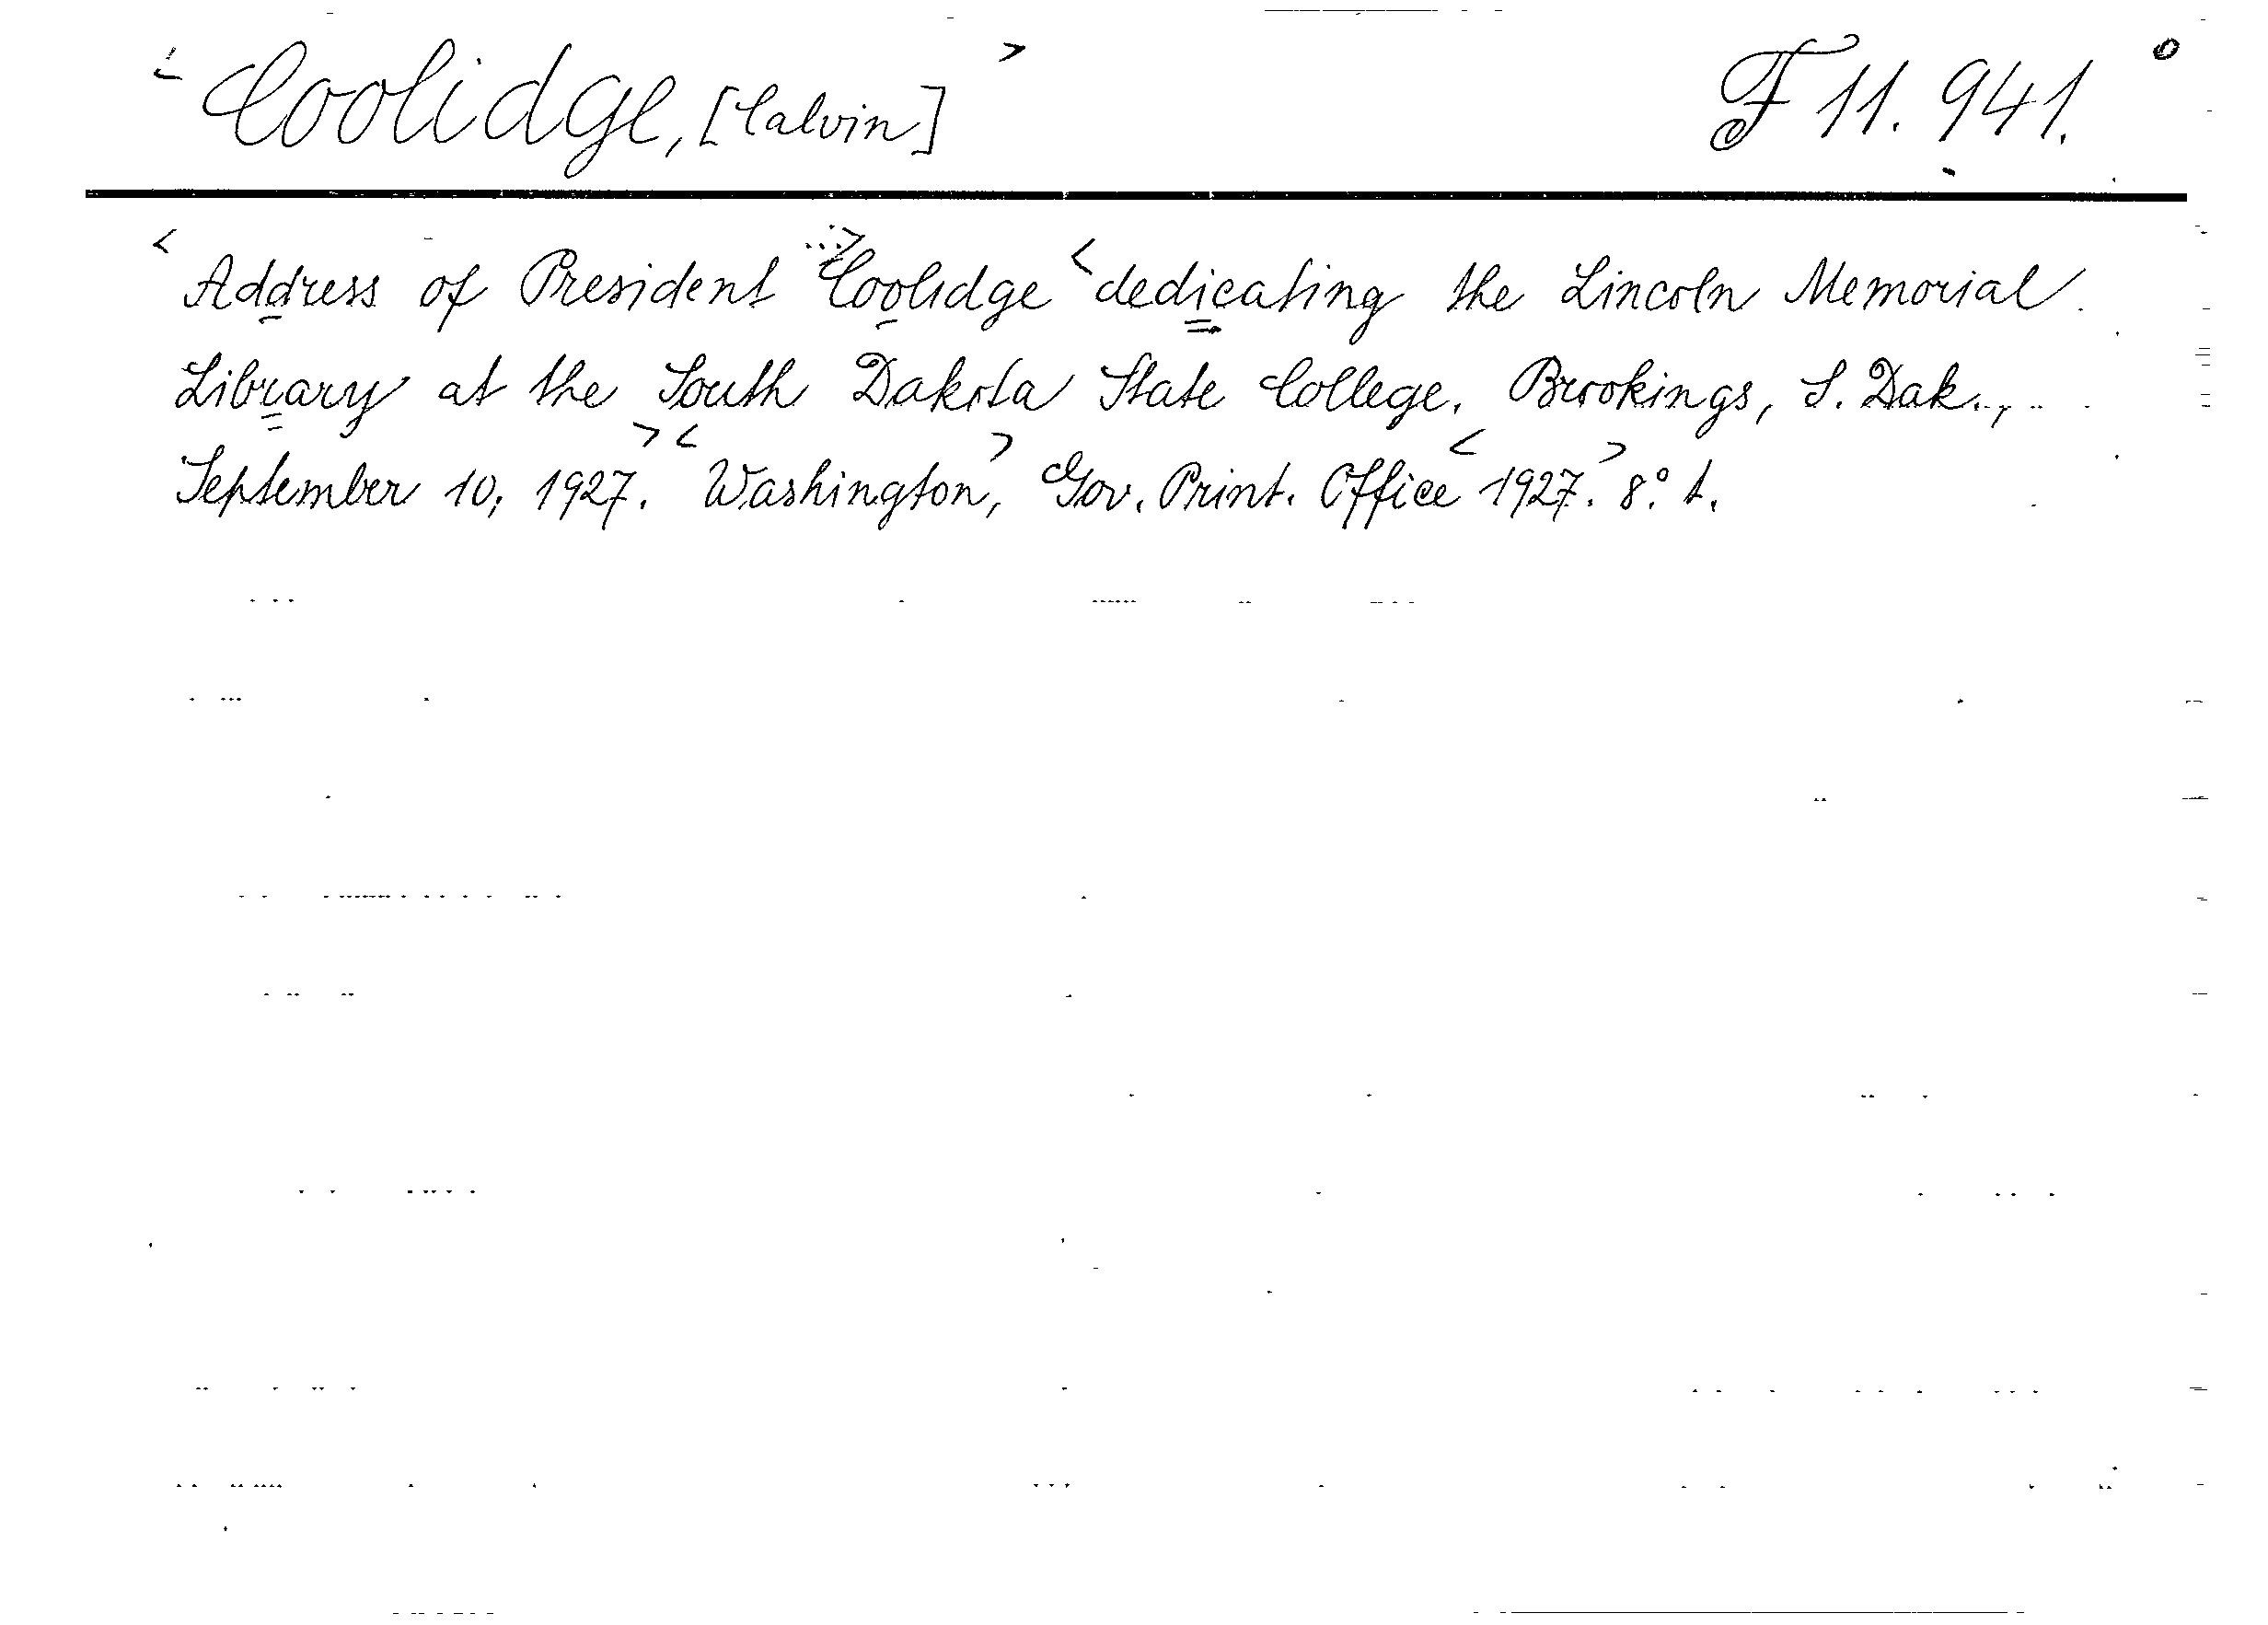 < Coolidge, [Calvin] > F 11. 941. °
< Address of President ...> Coolidge < dedicating the Lincoln Memorial
Library at the South Dakota State College, Brookings, S. Dak.,
September 10, 1927. > < Washington, > Gov. Print. Office < 1927. > 8.° t.